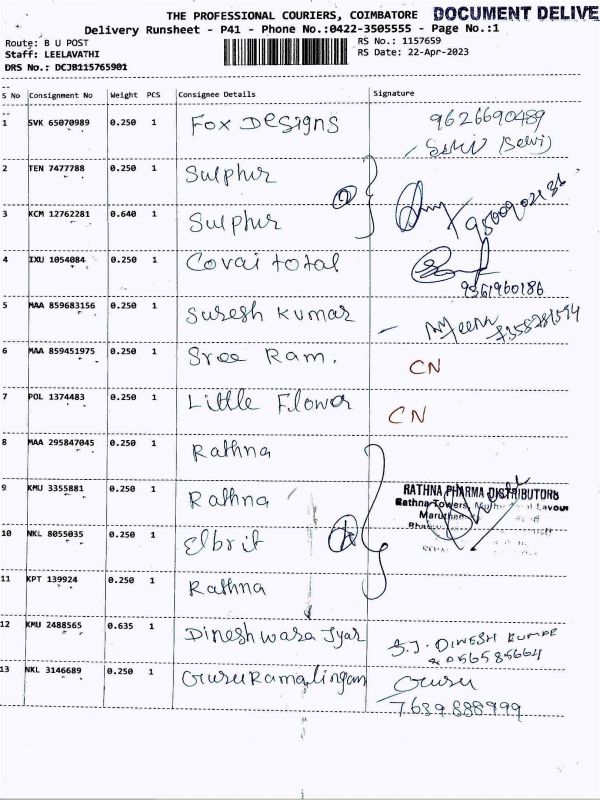 THE PROFESSIONAL COURIERS, COIMBATORE DOCUMENT DELIVE
Delivery Runsheet - P41 - Phone No.:0422-3505555 - Page No.:1
Route: B U POST RS No.: 1157659
Staff: LEELAVATHI RS Date: 22-Apr-2023
DRS No.: DCJB115765901
S No Consignment No Weight PCS Consignee Details Signature
1 SVK 65070989 0.250 1 Fox Designs 9626690489
(Selvi)
2 TEN 7477788 0.250 1 Sulphur
3 KCM 12762281 0.640 1 Sulphur
4 IXU 1054084 0.250 1 Covai total
9361960186
5 MAA 859683156 0.250 1 Suresh Kumar - Meena
6 MAA 859451975 0.250 1 Sree Ram. CN
7 POL 1374483 0.250 1 Little Flower CN
8 MAA 295847045 0.250 1 Rathna
9 KMU 3355881 0.250 1 Rathna RATHNA PHARMA DISTRIBUTORS
Rathna Towers,
10 NKL 8055035 0.250 1 Elbrit
11 KPT 139924 0.250 1 Rathna
12 KMU 2488565 0.635 1 Dineshwara Iyar S.J. DINESH KUMAR
8056585664
13 NKL 3146689 0.250 1 Gururamalingam Guru
7639888999